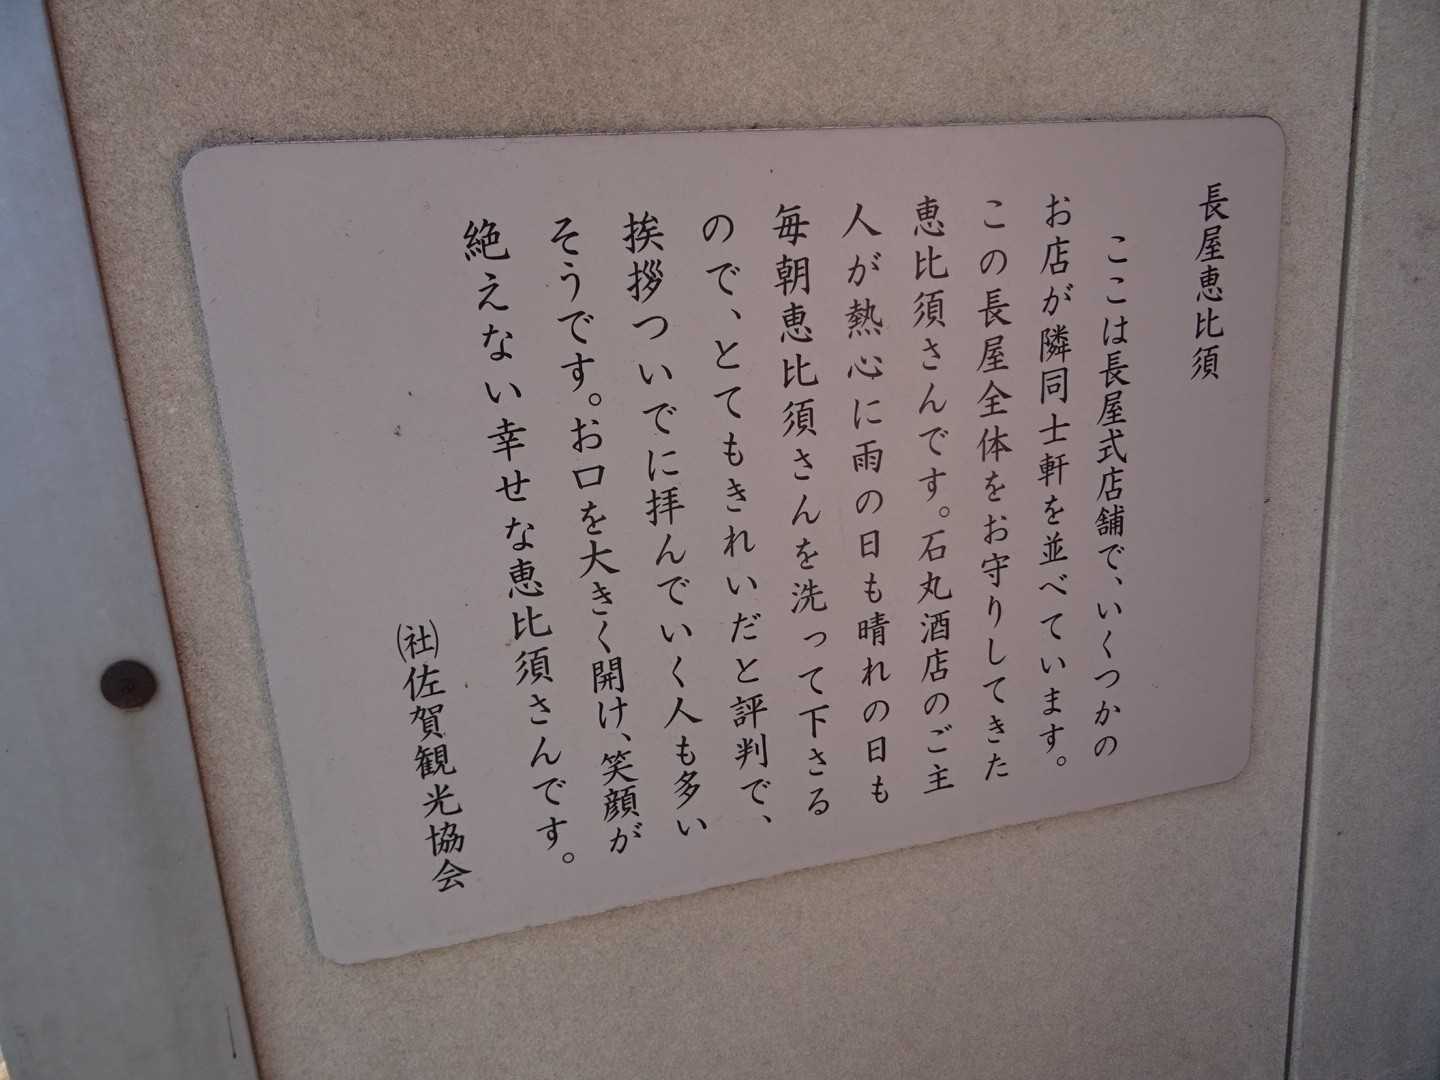 長屋恵比須
ここは長屋式店舗で、いくつかの
お店が隣同士軒を並べています。
この長屋全体をお守りしてきた
恵比須さんです。石丸酒店のご主
人が熱心に雨の日も晴れの日も
毎朝恵比須さんを洗って下さる
ので、とてもきれいだと評判で、
挨拶ついでに拝んでいく人も多い
そうです。お口を大きく開け、笑顔が
絶えない幸せな恵比須さんです。
㈳佐賀観光協会